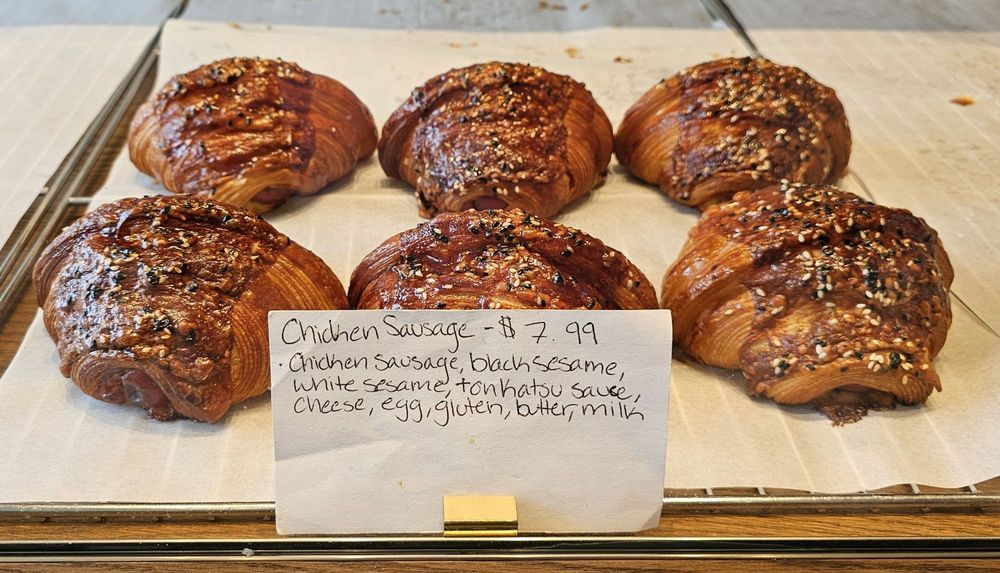 Chicken Sausage - $ 7.99
· Chicken sausage, black sesame,
white sesame, tonkatsu sauce,
cheese, egg, gluten, butter, milk